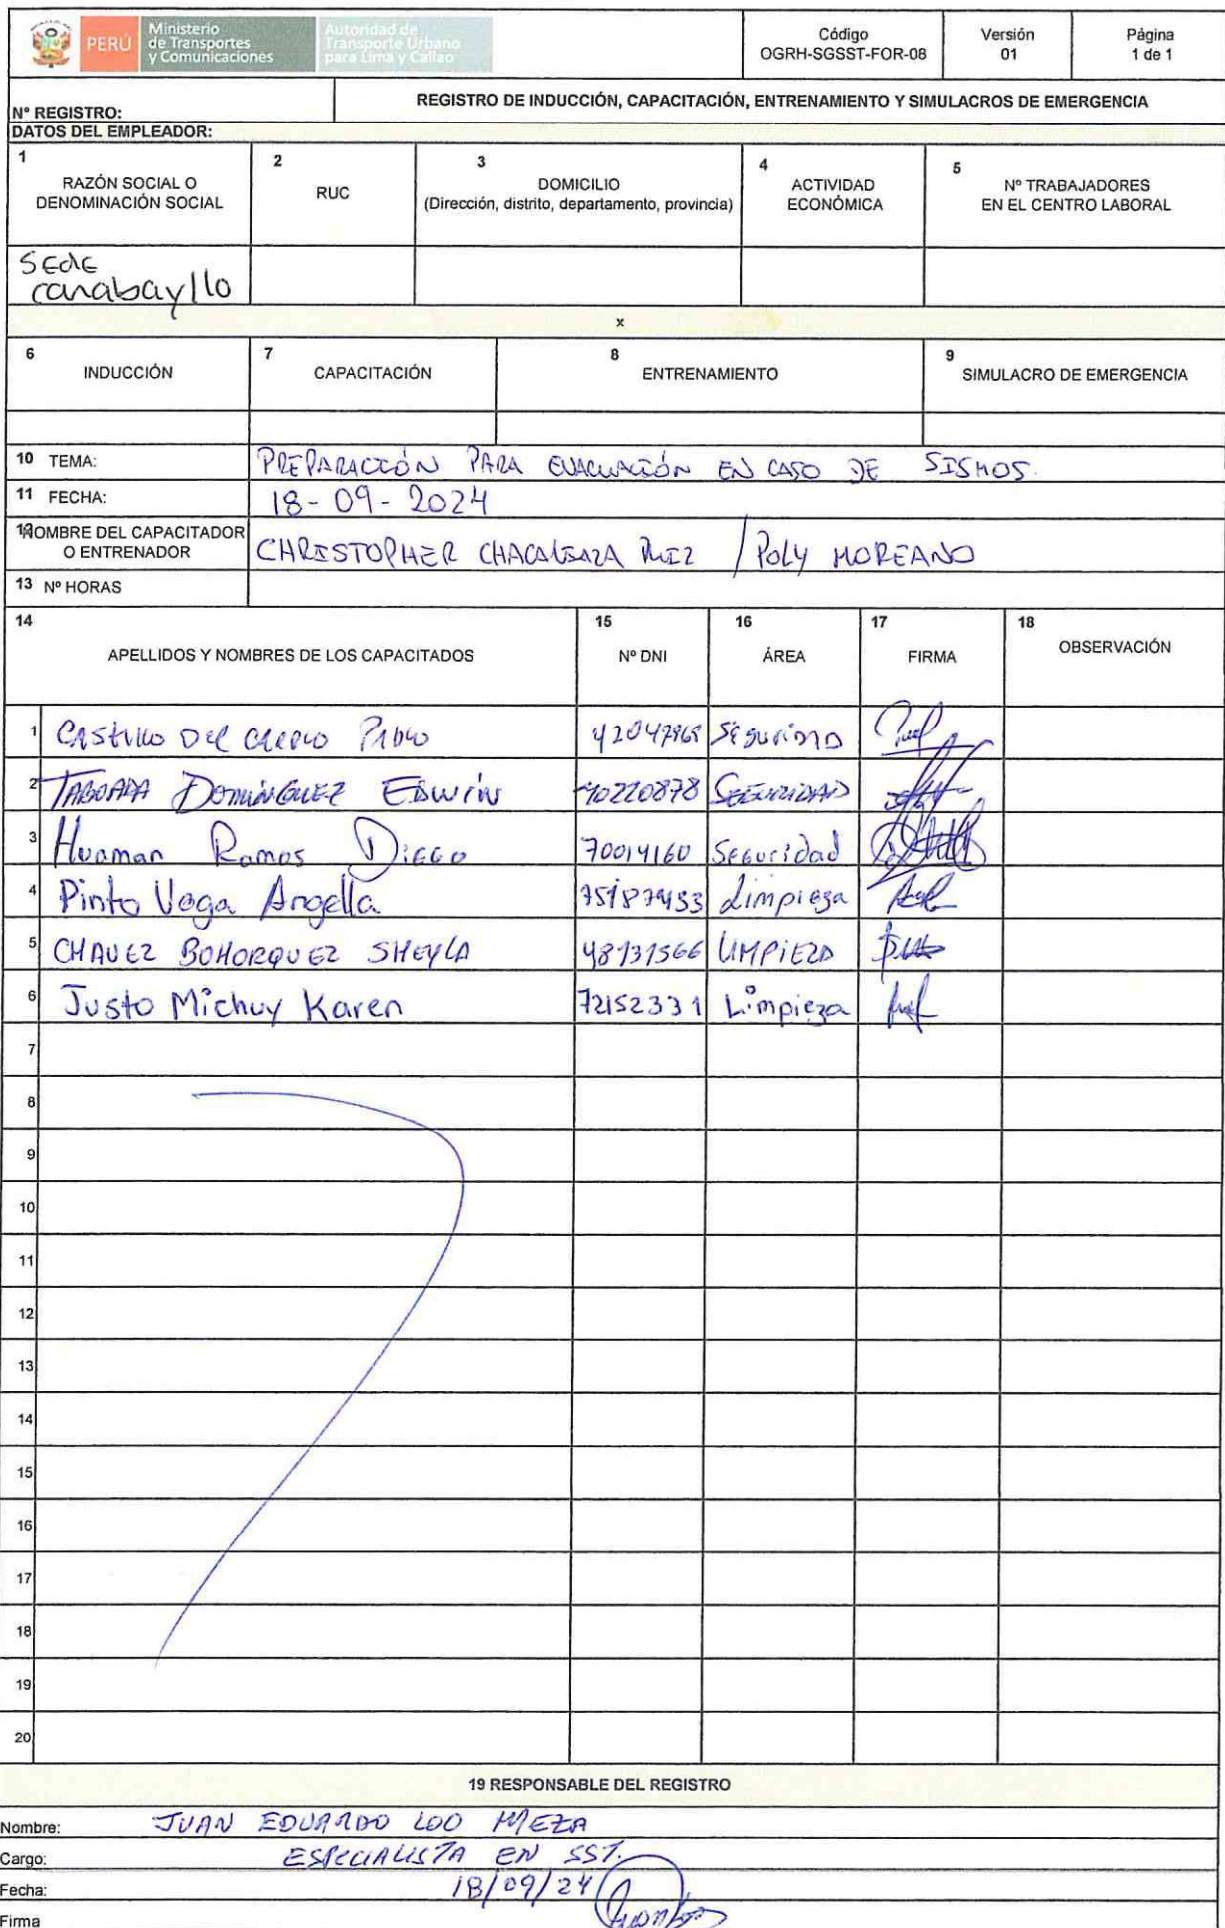 PERÚ
Ministerio de Transportes y Comunicaciones
Autoridad de Transporte Urbano para Lima y Callao
Código OGRH-SGSST-FOR-08
Versión 01
Página 1 de 1
Nº REGISTRO:
REGISTRO DE INDUCCIÓN, CAPACITACIÓN, ENTRENAMIENTO Y SIMULACROS DE EMERGENCIA
DATOS DEL EMPLEADOR:
1 RAZÓN SOCIAL O DENOMINACIÓN SOCIAL
2 RUC
3 DOMICILIO (Dirección, distrito, departamento, provincia)
4 ACTIVIDAD ECONÓMICA
5 Nº TRABAJADORES EN EL CENTRO LABORAL
Sede
carabayllo
x
6 INDUCCIÓN
7 CAPACITACIÓN
8 ENTRENAMIENTO
9 SIMULACRO DE EMERGENCIA
10 TEMA: PREPARACCIÓN PARA EVACUACIÓN EN CASO DE SISMOS.
11 FECHA: 18-09-2024
12 NOMBRE DEL CAPACITADOR O ENTRENADOR CHRISTOPHER RUIZ / POLY MOREANO
13 Nº HORAS
14 APELLIDOS Y NOMBRES DE LOS CAPACITADOS
15 Nº DNI
16 ÁREA
17 FIRMA
18 OBSERVACIÓN
1 CASTILLO DEL Seguridad
2 TABOADA DOMINGUEZ EDWIN 40220878 SEGURIDAD
3 Huaman Ramos Diego 70014160 Seguridad
4 Pinto Vega Angella Limpieza
5 CHAVEZ BOHORQUEZ SHEYLA 48131566 LIMPIEZA
6 Justo Michuy Karen 72152331 Limpieza
7
8
9
10
11
12
13
14
15
16
17
18
19
20
19 RESPONSABLE DEL REGISTRO
Nombre: JUAN EDUARDO LOO MEZA
Cargo: ESPECIALISTA EN SST.
Fecha: 18/09/24
Firma